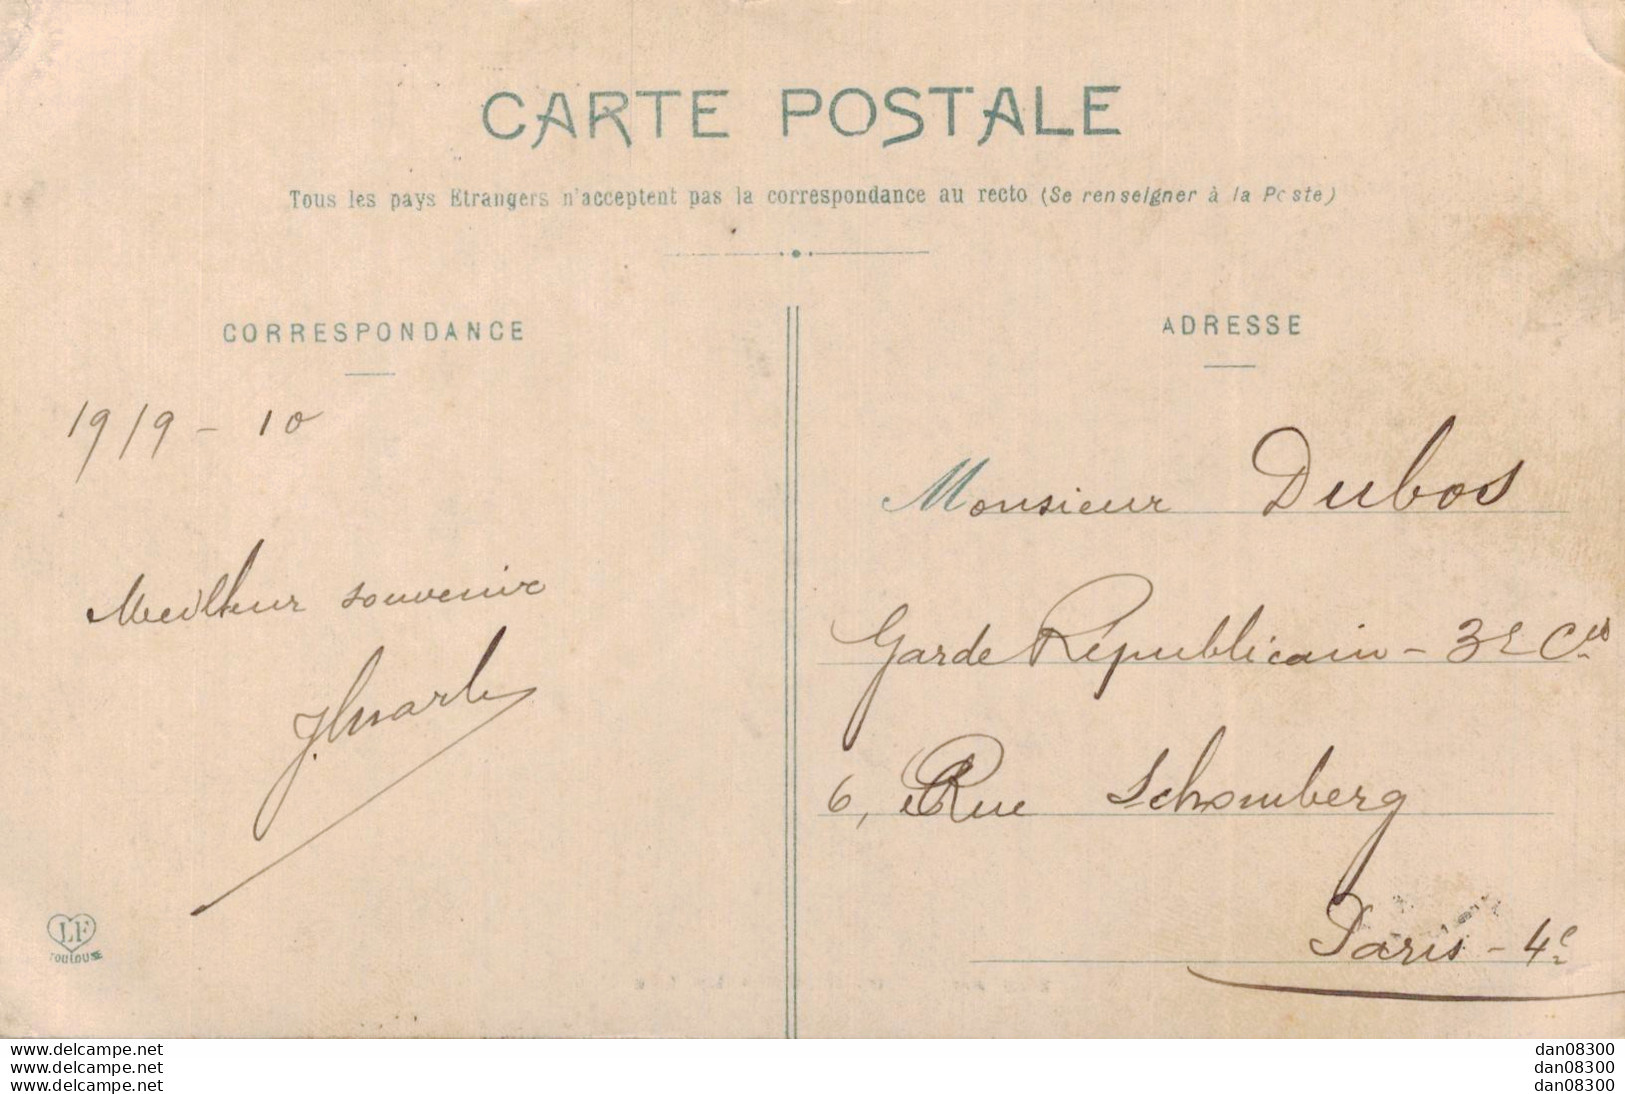 CARTE POSTALE
Tous les pays Etrangers n'acceptent pas la correspondance au recto (Se renseigner à la Poste)
CORRESPONDANCE
19/9 - 10
Meilleur souvenir
LF
TOULOUSE
ADRESSE
Monsieur Dubos
Garde Républicain - 3e Cie
6, Rue Schomberg
Paris - 4e
www.delcampe.net
www.delcampe.net
www.delcampe.net
dan08300
dan08300
dan08300